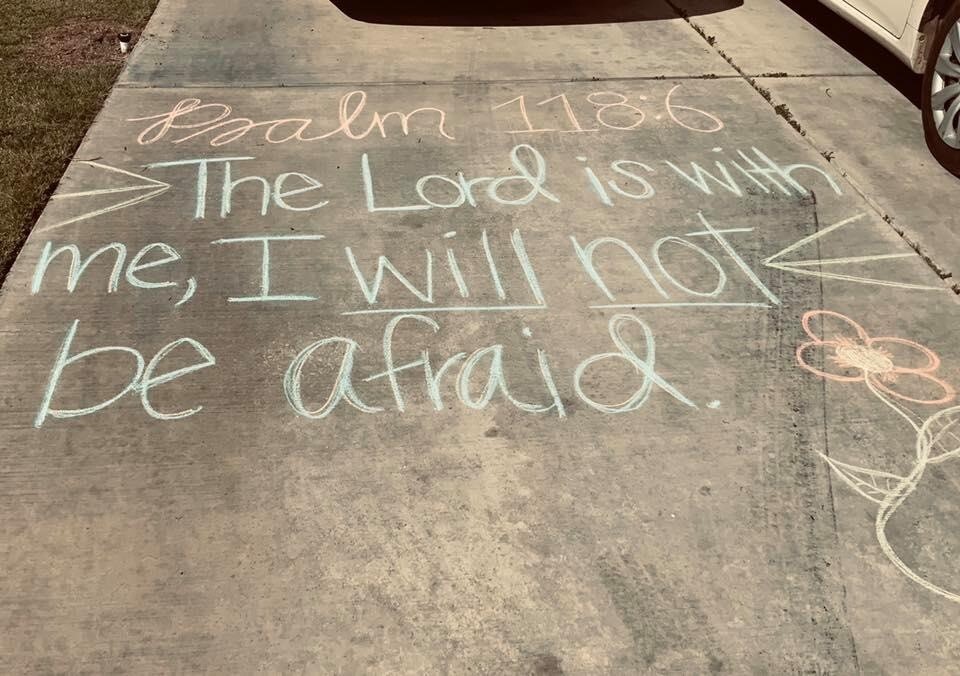 Psalm 118:6
The Lord is with
me, I will not
be afraid.